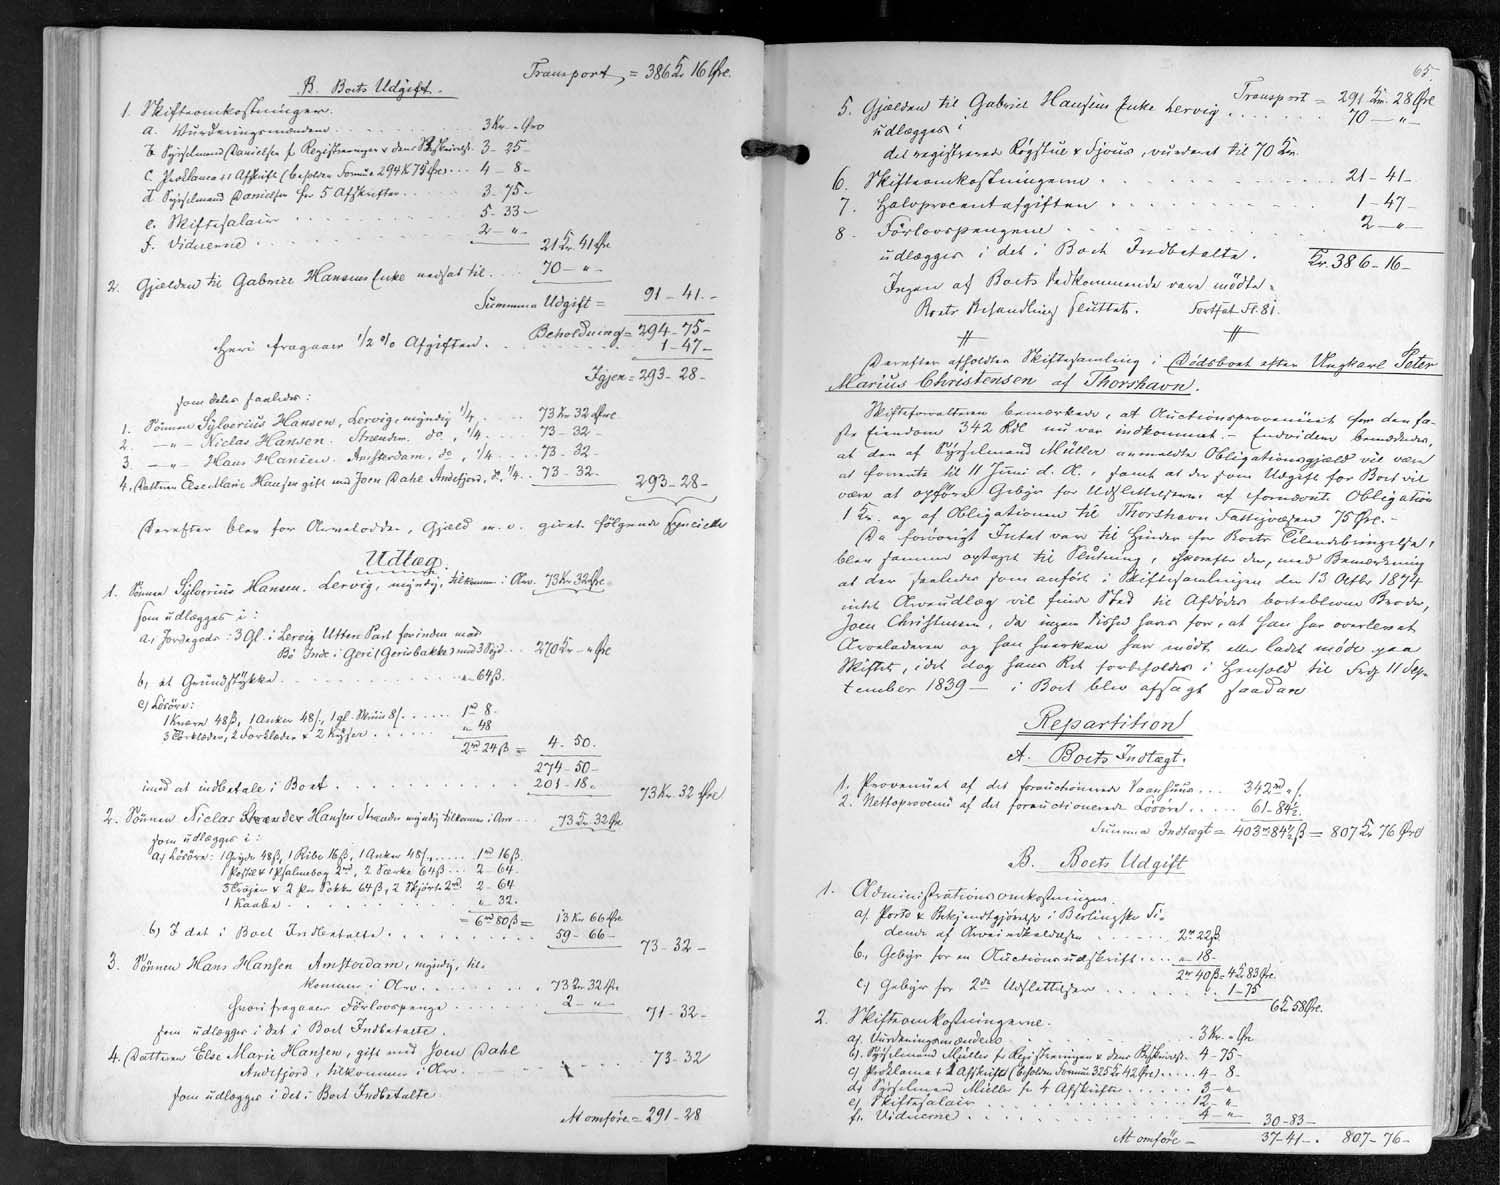 Transport = 386 Kr 16 Øre.
B. Boets Udgift.
1. Skifteomkostninger.
a. Vurderingsmændene . . . 3 Kr. „ Øre
b. Sysselmand Danielsen f. Registreringen & dens Beskrivelse 3 - 25 -
c. Proklama & Afskrift (beholden Formue 294 K 75 Øre) . . . 4 - 8 -
d. Sysselmand Danielsen for 5 Afskrifter . . . 3 - 75 -
e. Skiftesalair . . . 5 - 33 -
f. Vidnerne . . . 2 - „ -
21 Kr. 41 Øre
2. Gjælden til Gabriel Hansens Enke nedsat til . . . 70 - „ -
Summa Udgift = 91 - 41 -
Beholdning = 294 - 75 -
Heri fragaaer 1/2 % Afgiften . . . 1 - 47 -
Igjen = 293 - 28 -
som deles saaledes:
1. Sønnen Sylverius Hansen, Lervig, myndig 1/4 . . . 73 Kr 32 Øre
2. -„- Niclas Hansen. Strænder. do, 1/4 . . . 73 - 32 -
3. -„- Hans Hansen. Amsterdam, do, 1/4 . . . 73 - 32 -
4. Datteren Else Marie Hansen gift med Joen Dahl Andefjord, do. 1/4 . . 73 - 32 - 293 - 28 -
Derefter blev for Arvelodder, Gjæld m. v. givet følgende specielle
Udlæg.
1. Sønnen Sylverius Hansen. Lervig, myndig, tilkommer i Arv. 73 Kr 32 Øre
som udlægges i:
a) Jordegods: 3 Gl. i Lervig Utten Part forinden med
Bø Inde i Geri (Gerisbakke) med 3 Skjd . . 270 Kr - „ Øre
b, et Grundstykke . . . „ 64 β.
c) Løsøre:
1 Kværn 48 β, 1 Anker 48 β, 1 gl. Skrin 8 β . . . 1 rd 8.
3 Tørklæder, 2 Forklæder & 2 Kyser . . . „ 48
2 rd 24 β = 4 - 50.
274 - 50 -
imod at indbetale i Boet . . . 201 - 18 „ 73 Kr. 32 Øre
2. Sønnen Niclas Strænder Hansen Strænder myndig tilkommer i Arv . . . 73 Kr. 32 Øre
som udlægges i:
a) Løsøre: 1 Gryde 48 β, 1 Ribe 16 β, 1 Anker 48 β, . . . 1 rd 16 β.
1 Postil & 1 Psalmebog 2 rd, 2 Særke 64 β . . . 2 - 64.
3 Trøjer & 2 Par Sokker 64 β, 2 Skjørte 2 rd 2 - 64
1 Kaabe . . . „ - 32.
= 6 rd 80 β = 13 Kr 66 Øre
b) I det i Boet Indbetalte . . . 59 - 66 - 73 - 32 -
3. Sønnen Hans Hansen Amsterdam, myndig, til-
kommer i Arv . . . 73 Kr 32 Øre
hvori fragaaer Førlovspenge . . . 2 - „ - 71 - 32 -
som udlægges i det i Boet Indbetalte.
4. Datteren Else Marie Hansen, gift med Joen Dahl
Andefjord, tilkommer i Arv . . . 73 - 32
som udlægges i det i Boet Indbetalte.
At omføre = 291 - 28
65.
Transport = 291 Kr. 28 Øre
5. Gjælden til Gabriel Hansens Enke Lervig . . . 70 - „ -
udlægges i
det registrerede Røgstue & Fjøs, vurderet til 70 Kr.
6. Skifteomkostningerne . . . 21 - 41 -
7. Halvprocentafgiften . . . 1 - 47 -
8. Førlovspengene . . . 2 - „ -
udlægges i det i Boet Indbetalte. Kr. 386 - 16 -
Ingen af Boets Vedkommende vare mødte.
Boets Behandling sluttet. Fortsat Fl. 81.
Derefter afholdtes Skiftesamling i Dødsboet efter Ungkarl Peter
Marius Christensen af Thorshavn.
Skifteforvalteren bemærkede, at Auctionsprovenüet for den fa-
ste Eiendom 342 Rdl nu var indkommet. - Endvidere bemærkedes,
at den af Sysselmand Müller anmeldte Obligationsgjæld vil være
at forrente til 11 Juni d. A., samt at der som Udgift for Boet vil
være at opføre Gebyr for Udslettelsen af fornævnte Obligation
1 Kr. og af Obligationen til Thorshavn Fattigvæsen 75 Øre. -
Da forøvrigt Intet var til Hinder for Boets Tilendebringelse,
blev samme optaget til Slutning, hvorefter der, med Bemærkning
at der saaledes som anført i Skiftesamlingen den 13 Octbr 1874
intet Arveudlæg vil finde Sted til Afdødes bortblevne Broder,
Joen Christensen, da ingen Vished haves for, at han har overlevet
Arveladeren og han hverken har mødt eller ladet møde paa
Skiftet, idet dog hans Ret forbeholdes i Henhold til Frdg 11 Sep-
tember 1839 - i Boet blev afsagt saadan
Repartition
A. Boets Indtægt.
1. Provenüet af det forauctionerede Vaanhuus . . . 342 rd „ β.
2. Nettoprovenü af det forauctionerede Løsøre . . . 61 - 84 1/2.
Summa Indtægt = 403 rd 84 1/2 β = 807 Kr 76 Øre
B. Boets Udgift
1. Administrationsomkostninger.
a) Porto & Bekjendtgjørelse i Berlingske Ti-
dende af Arveindkaldelsen . . . 2 rd 22 β.
b, Gebyr for en Auctionsudskrift . . . „ - 18 -
2 rd 40 β = 4 Kr 83 Øre.
c) Gebyr for 2de Udslettelser . . . 1 - 75
6 Kr 58 Øre.
2. Skifteomkostningerne.
a) Vurderingsmændene . . . 3 Kr. „ Øre
b). Sysselmand Müller for Registreringen & dens Beskrivelse. 4 - 75 -
c) Proklama & Afskrift (beholden Formue 325 Kr 42 Øre) . . . 4 - 8 -
d) Sysselmand Müller for 4 Afskrifter . . . 3 - „
e) Skiftesalair . . . 12 - „
f). Vidnerne . . . 4 - „ 30 - 83 -
At omføre - 37 - 41 - . 807 - 76 -